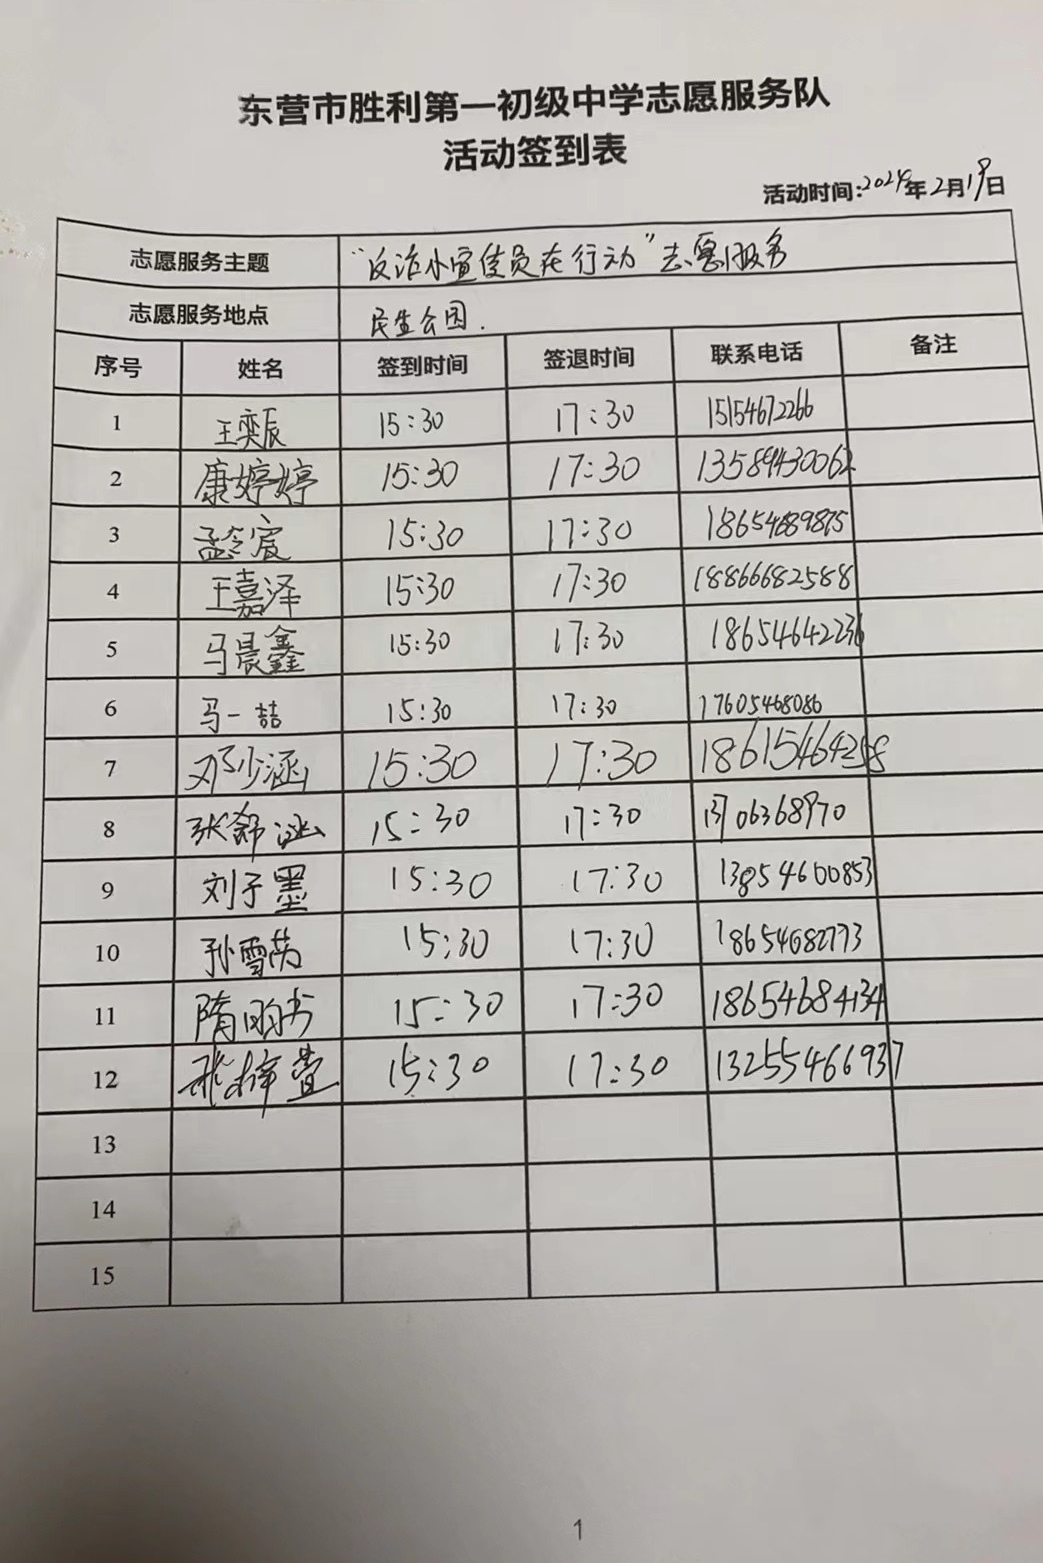 东营市胜利第一初级中学志愿服务队
活动签到表
活动时间:2024年2月19日
志愿服务主题 "反诈小宣传员在行动"志愿服务
志愿服务地点 民生公园.
序号 姓名 签到时间 签退时间 联系电话 备注
1 王奕辰 15:30 17:30 15154672266
2 康婷婷 15:30 17:30 13589430062
3 孟令宸 15:30 17:30 18654689875
4 王嘉泽 15:30 17:30 18866682588
5 马晨鑫 15:30 17:30 18654642236
6 马一喆 15:30 17:30 17605468086
7 邓少涵 15:30 17:30 18615464258
8 张舒涵 15:30 17:30
9 刘子墨 15:30 17:30 13854600853
10 孙雪 15:30 17:30 18654682773
11 隋明书 15:30 17:30 18654684134
12 张梓萱 15:30 17:30 13255466937
13
14
15
1